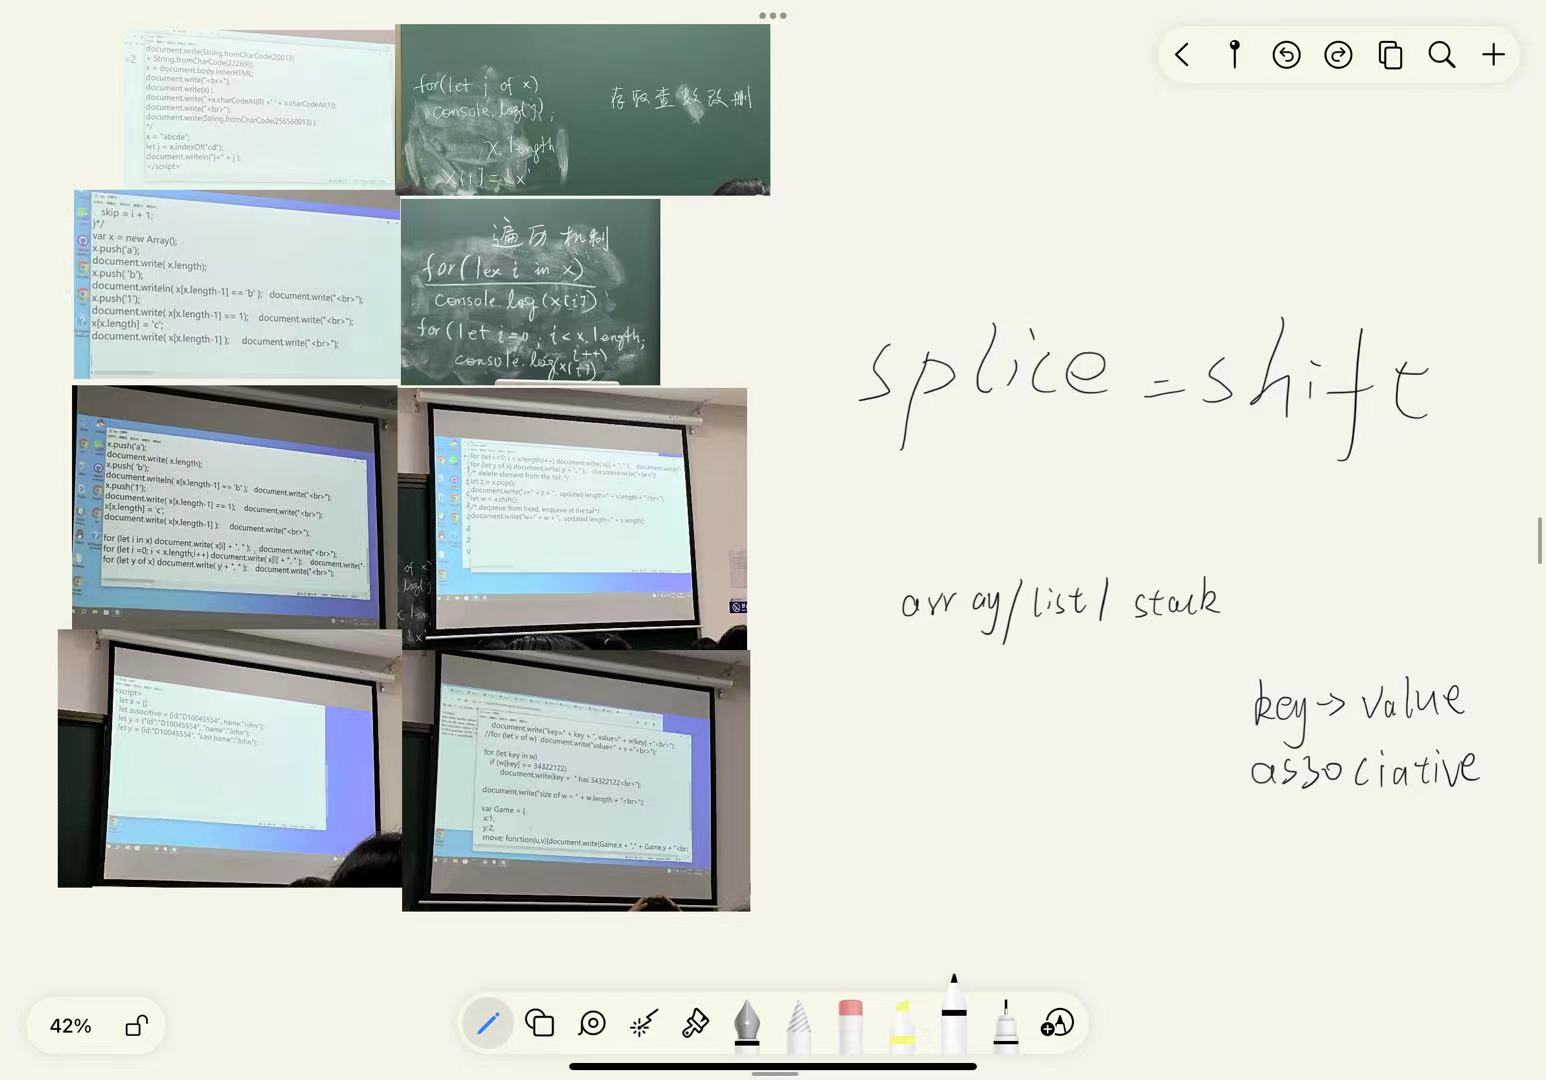 document.write(String.fromCharCode(20013)
+ String.fromCharCode(22269));
x = document.body.innerHTML;
document.write("<br>");
document.write(x) ;
document.write(" +x.charCodeAt(0) +' ' + x.charCodeAt(1));
document.write("<br>");
document.write(String.fromCharCode(256560013) )
*/
x = "abcde";
let j = x.indexOf("cd");
document.writeln("j=" + j );
</script>
=2
for(let j of x)
console.log(j);
x.length
x[i] = 'x'
存取查数改删
skip = i + 1;
}*/
var x = new Array();
x.push('a');
document.write( x.length);
x.push( 'b');
document.writeln( x[x.length-1] == 'b' ); document.write("<br>");
x.push('1');
document.write( x[x.length-1] == 1); document.write("<br>");
x[x.length] = 'c';
document.write( x[x.length-1] ); document.write("<br>");
遍历机制
for(lex i in x)
console.log(x[i])
for(let i=0; i<x.length;
i++)
console.log(x[i])
x.push('a');
document.write( x.length);
x.push( 'b');
document.writeln( x[x.length-1] == 'b' ); document.write("<br>");
x.push('1');
document.write( x[x.length-1] == 1); document.write("<br>");
x[x.length] = 'c';
document.write( x[x.length-1] ); document.write("<br>");
for (let i in x) document.write( x[i] + ", " ); document.write("<br>");
for (let i =0; i < x.length;i++) document.write( x[i] + ", " ); document.write("
for (let y of x) document.write( y + ", " ); document.write("<br>");
for (let i =0; i < x.length;i++) document.write( x[i] + ", " ); document.write("
for (let y of x) document.write( y + ", " ); document.write("<br>");
/* delete element from the tail; */
let z = x.pop();
document.write("z=" + z + ", updated length=" + x.length + "<br>");
let w = x.shift();
/* dequeue from head, enqueue at the tail*/
document.write("w=" + w + ", updated length=" + x.length);
<script>
let a = [];
let associtive = {id:"D10045554", name:"John"};
let y = {"id":"D10045554", "name":"John"};
let y = {id:"D10045554", "Last name":"John"};
document.write("key=" + key + ", value=" + w[key] +"<br>");
//for (let v of w) document.write("value=" + v +"<br>");
for (let key in w)
if (w[key] == 34322122)
document.write(key + " has 34322122<br>");
document.write("size of w = " + w.length + "<br>");
var Game = {
x:1,
y:2,
move: function(u,v){document.write(Game.x + "," + Game.y + "<br
splice = shift
array/list/ stack
key→value
associative
42%